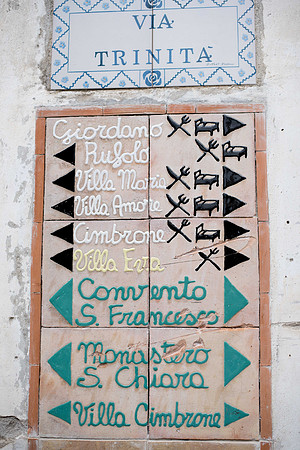 VIA
TRINITÀ
Giordano
Rufolo
Villa Maria
Villa Amore
Cimbrone
Villa Eva
Convento
S. Francesco
Monastero
S. Chiara
Villa Cimbrone